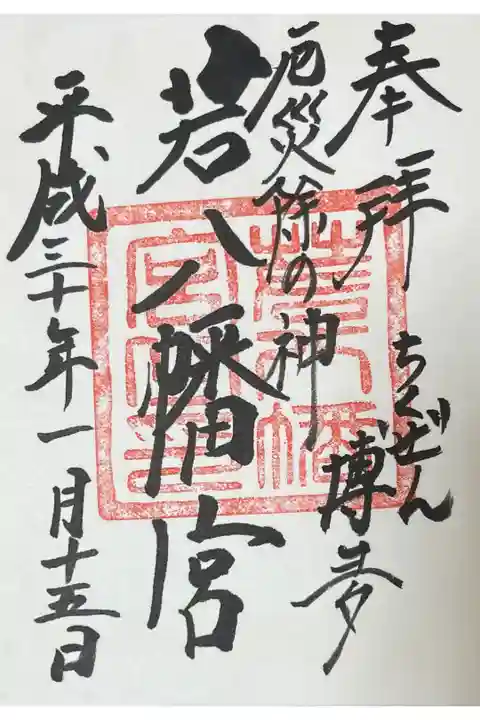 奉拝
ちくぜん
博多
厄災除の神
若八幡宮
平成三十年一月十五日
若八幡
宮